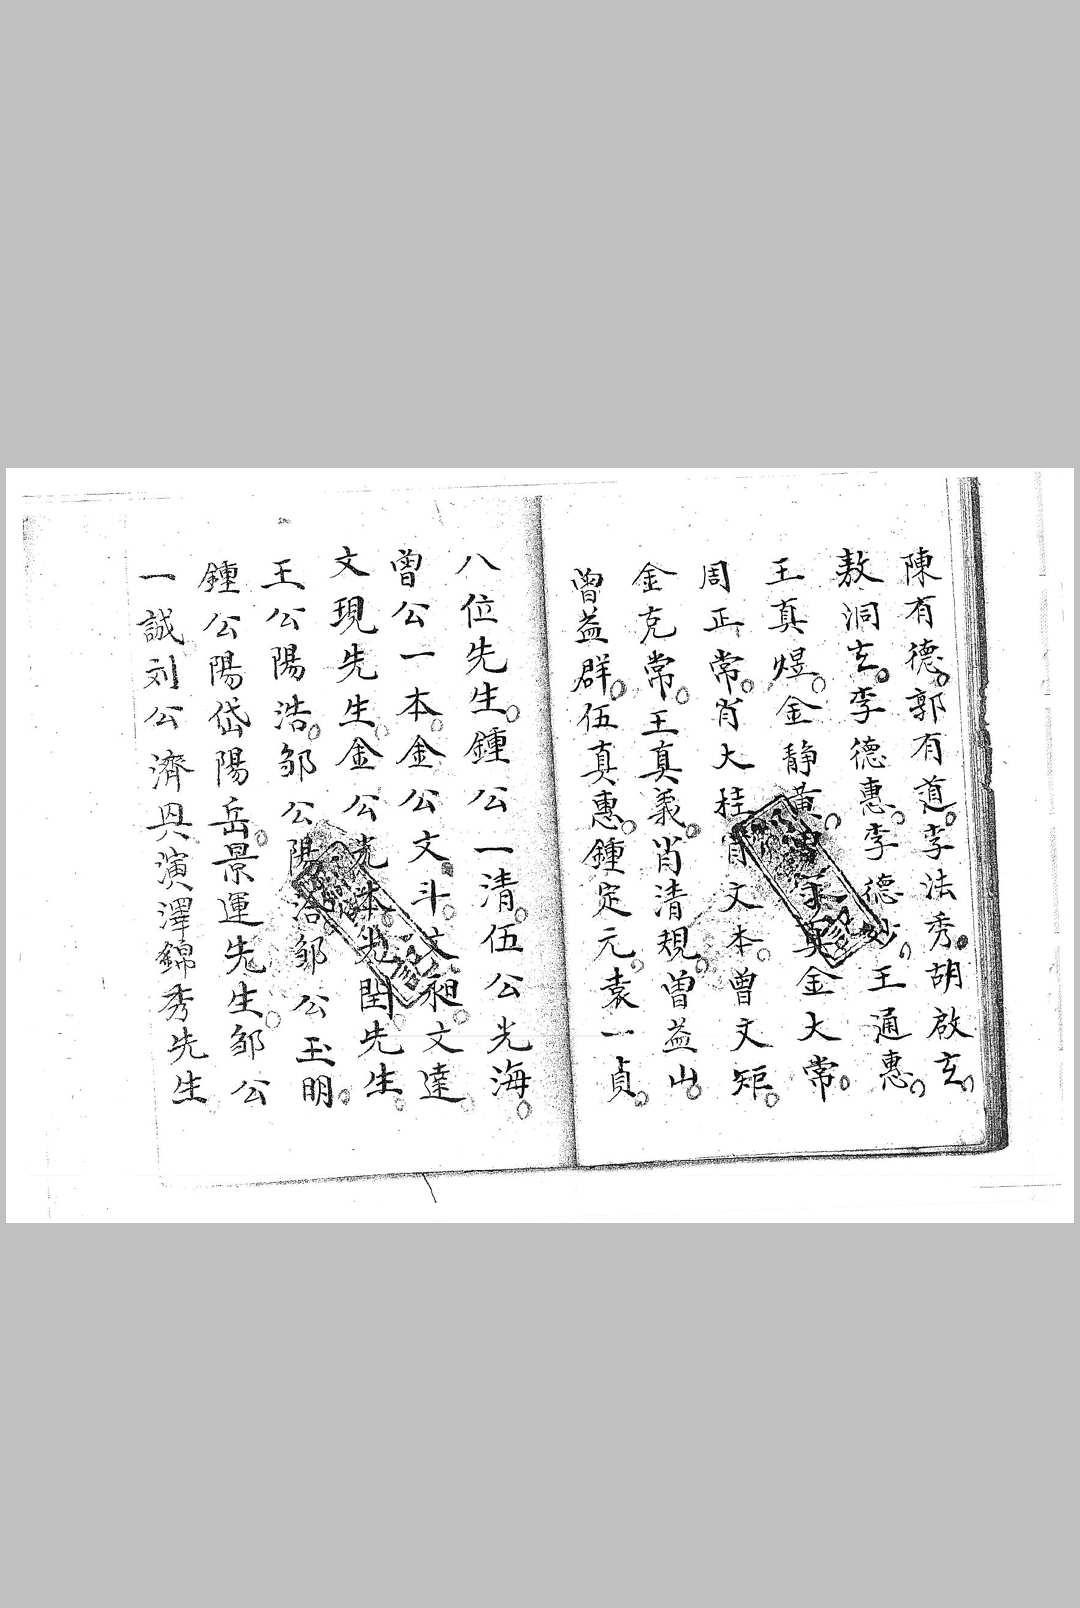 陳有德。郭有道。李法秀。胡啟玄。
敖洞玄。李德惠。李德妙。王通惠。
王真煜。金静黃。真金大常。
周正常。肖大桂。肖文本。曾文矩。
金克常。王真義。肖清規。曾益山。
曾益群。伍真惠。鍾定元。袁一貞。
八位先生。鍾公一清。伍公光海。
曾公一本。金公文斗。文昶。文達。
文現先生。金公先生。
王公陽浩。邹公陽浩邹公玉明。
鍾公陽岱陽岳。景運先生。邹公
一誠刘公濟與演澤錦秀先生